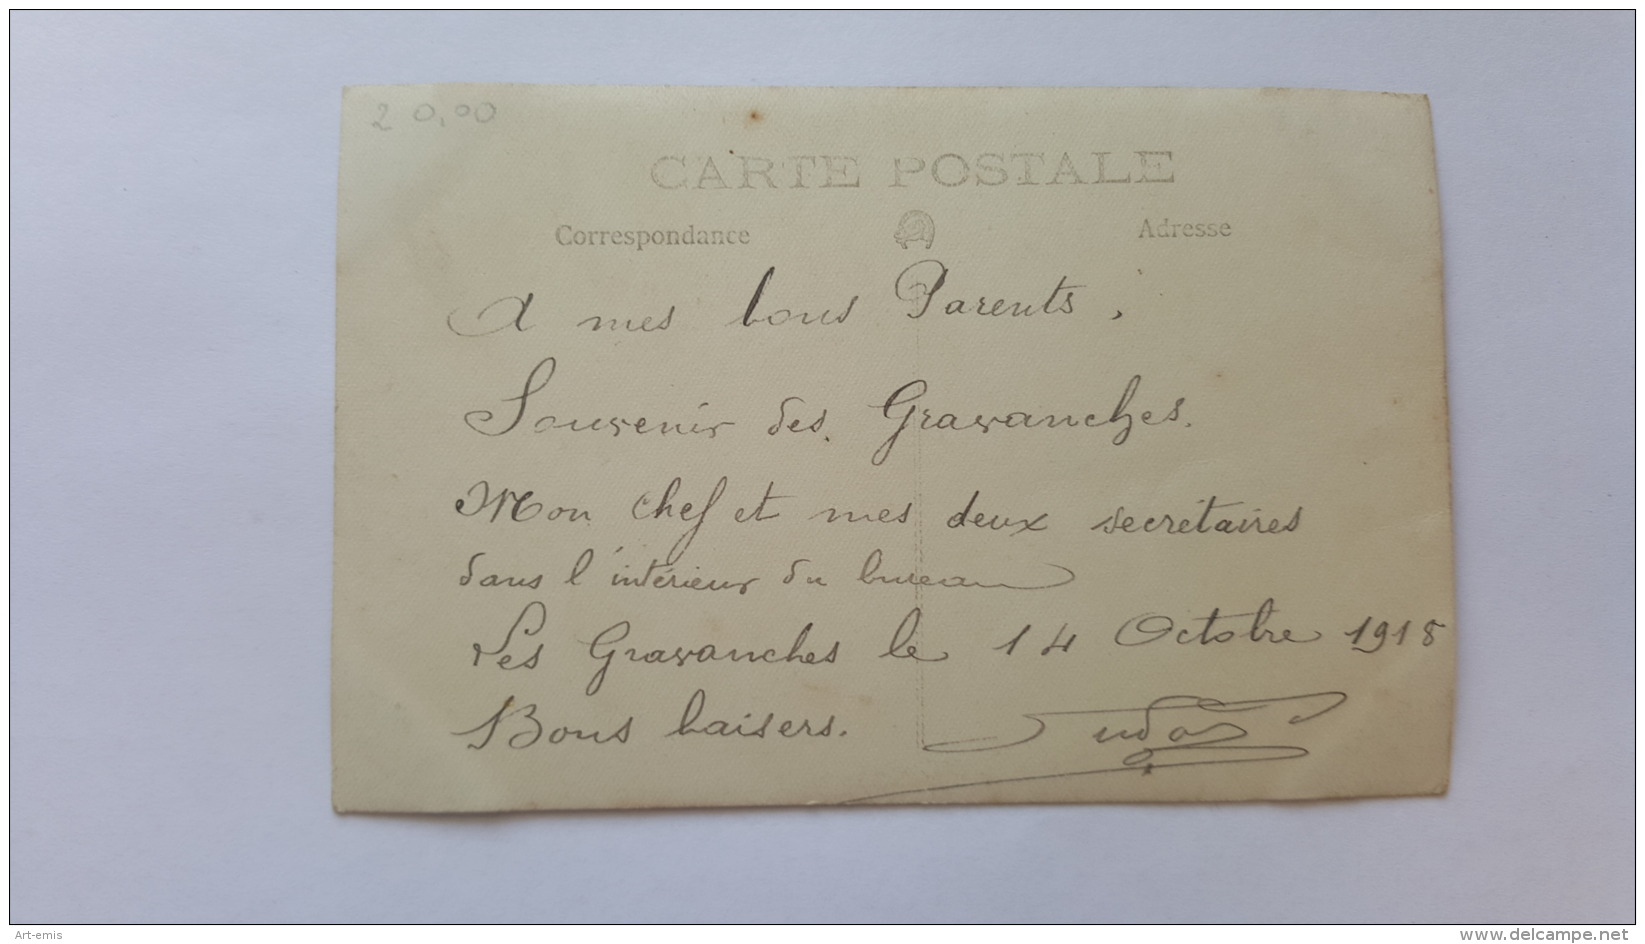 2 0,00
CARTE POSTALE
Correspondance
Adresse
A mes bons Parents,
Souvenir des Gravanches.
Mon chef et mes deux secrétaires
dans l'intérieur du bureau
Les Gravanches le 14 Octobre 1918
Bons baisers.
Art-emis
www.delcampe.net